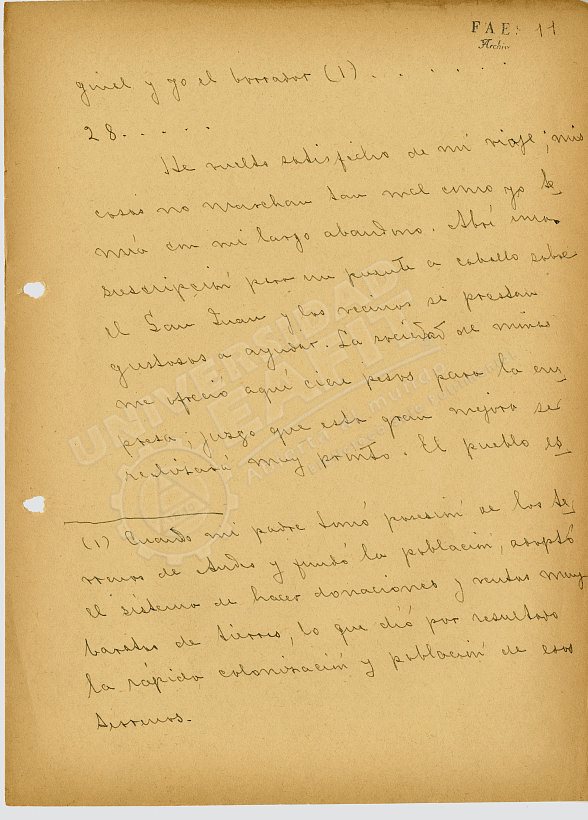 FAE: 11
Archivo
giniel y yo el borrador (1) . . . . . .
28. . . . .
He vuelto satisfecho de mi viaje; mis
cosas no marchan tan mal como yo te
mía con mi largo abandono. Abrí una
suscripción para un puente a caballo sobre
el San Juan y los vecinos se prestan
gustosos a ayudar. La sociedad de minas
me ofreció aquí cien pesos para la em
presa; juzgo que esta gran mejora se
realizará muy pronto. El pueblo es
(1) Cuando mi padre tomó posesión de los te
rrenos de Andes y fundó la población, adoptó
el sistema de hacer donaciones y ventas muy
baratas de tierras, lo que dió por resultado
la rápida colonización y población de esos
terrenos.
UNIVERSIDAD
EAFIT